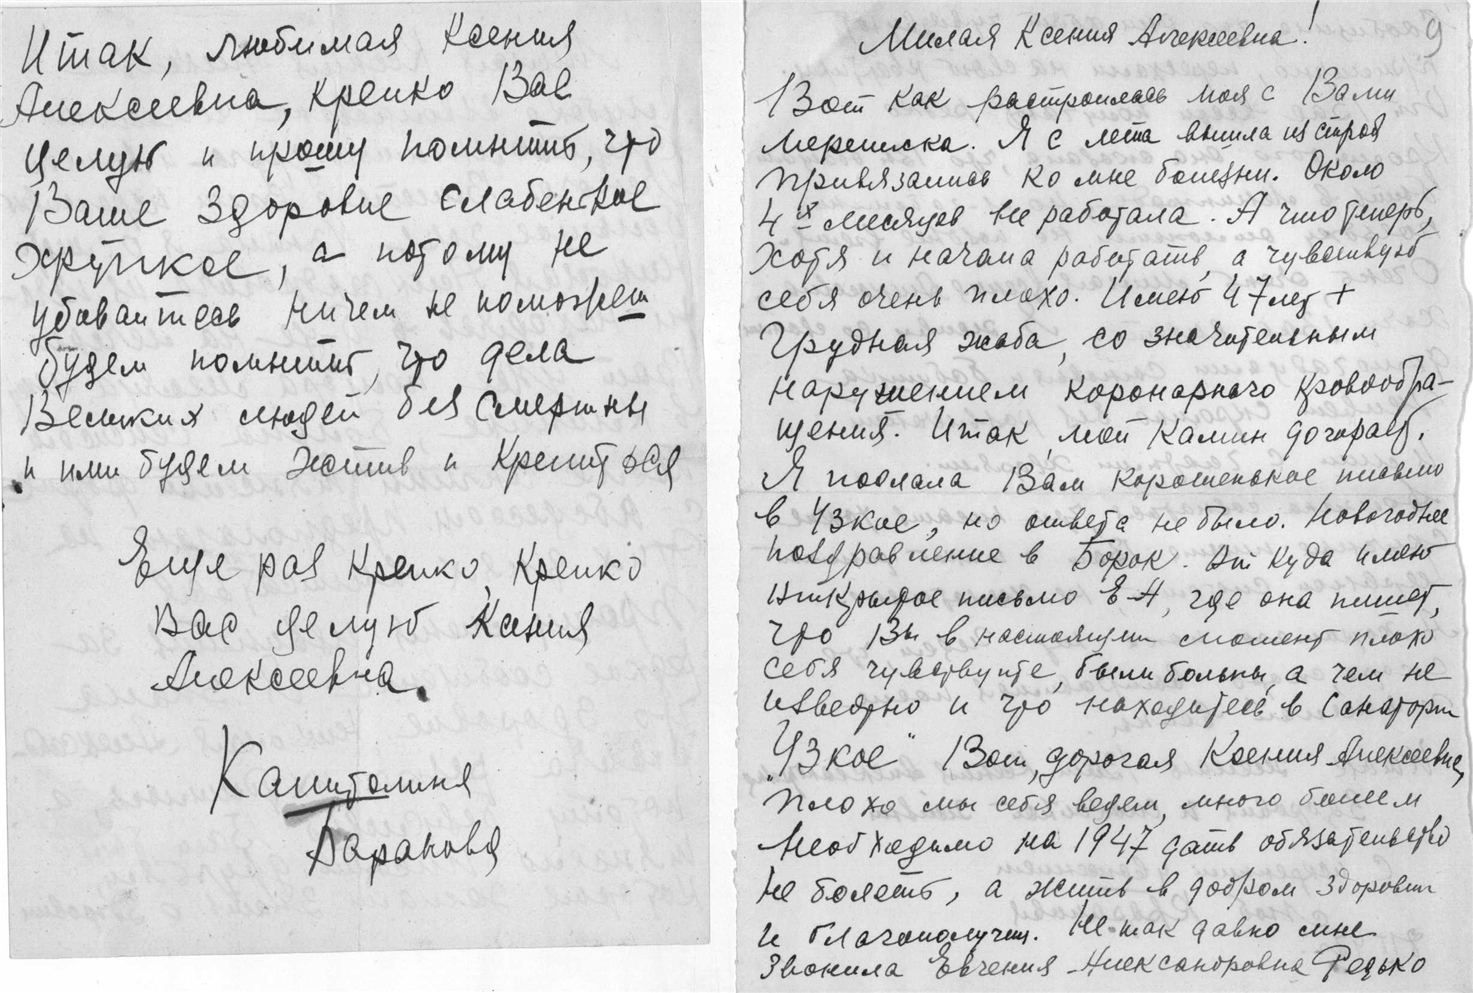 Итак, любимая Ксения
Алексеевна, крепко Вас
целую и прошу помнить, что
Ваше здоровье слабенькое
хрупкое, а потому не
убивайтесь ничем не поможем
будем помнить, что дела
Великих людей без смертны
и ими будем жить и крепиться
Еще раз крепко, крепко
Вас целую Ксения
Алексеевна.
Капитолина
Баранова
Милая Ксения Алексеевна!
9
Вот как расстроилась моя с Вами
переписка. Я с лета вышла из строя
привязались ко мне болезни. Около
4х месяцев не работала. А что теперь,
хотя и начала работать, а чувствую
себя очень плохо. Имею 47 лет +
грудная жаба, со значительным
нарушением коронарного кровообра-
щения. Итак, мой камин догорает.
Я послала Вам хорошенькое письмо
в Узкое, но ответа не было. Новогоднее
поздравление в Борок. От куда имею
открытое письмо Е-А, где она пишет,
что Вы в настоящий момент плохо
себя чувствуете, были больны, а чем не
известно и что находитесь в Санатории
"Узкое" Вот, дорогая Ксения Алексеевна,
плохо мы себя ведем, много болеем
Необходимо на 1947 дать обязательство
не болеть, а жить в добром здоровии
и благополучии. Не так давно мне
звонила Евгения Александровна Редько